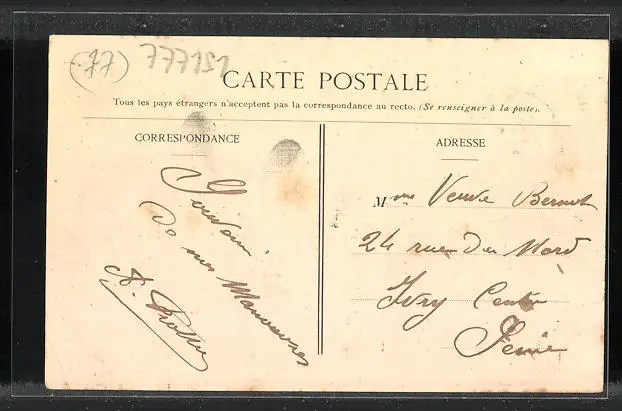 (77) 777151
CARTE POSTALE
Tous les pays étrangers n'acceptent pas la correspondance au recto. (Se renseigner à la poste).
CORRESPONDANCE
Souvenir
De mes Manoeuvres
ADRESSE
Mme Veuve Bernot
24 rue du Nord
Ivry Centre
Seine